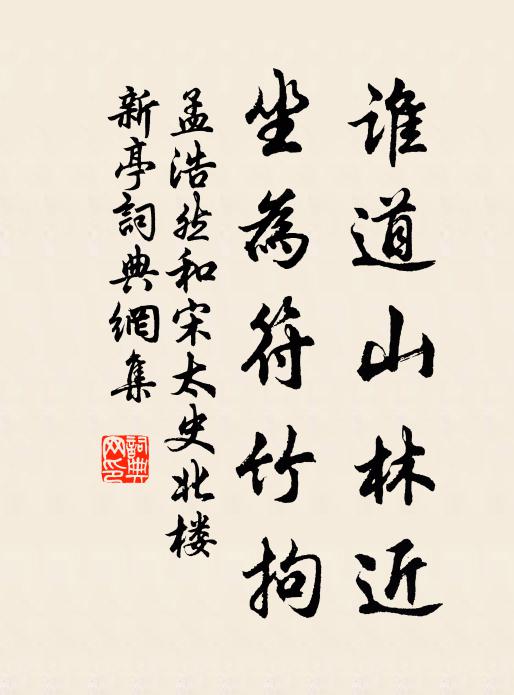 谁道山林近
坐為符竹拘
孟浩然和宋太史北楼
新亭詞典網集
詞典
网印